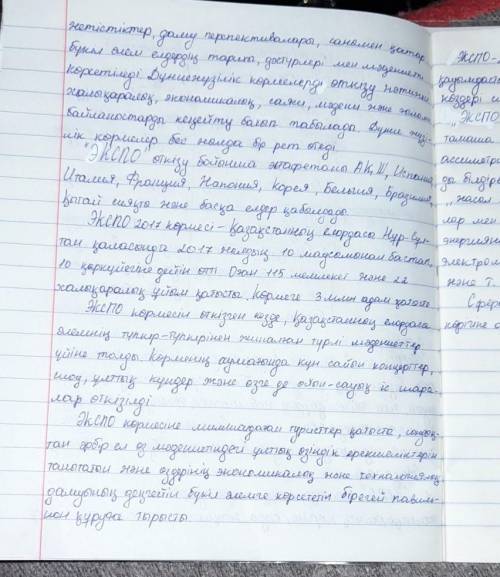 жетістіктер, даму перспективалары, сонымен қатар
бүкіл әлем елдердің тарихи, дәстүрлері мен мәдениеті
көрсетіледі. Дүниежүзілік көрмелерді өткізу нәтижесі
халықаралық, экономикалық, саяси, мәдени және ғылыми
байланыстарды кеңейту болып табылады. Дүние жүзі-
лік көрмелер бес жылда бір рет өтеді.
"ЭКСПО" өткізу бойынша эстафетаны АҚШ, Испания,
Италия, Франция, Жапония, Корея, Бельгия, Бразилия,
Қытай сияқты және басқа елдер қабылдады.
ЭКСПО 2017 көрмесі - Қазақстанның елордасы Нұр-Сұл-
тан қаласында 2017 жылдың 10 маусымынан бастап,
10 қыркүйегіне дейін өтті. Оған 115 мемлекет және 22
халықаралық ұйым қатысты. Көрмеге 3 млн адам қатысты.
ЭКСПО көрмесін өткізген кезде, Қазақстанның елордасы
әлемнің түпкір-түпкірінен жиналған түрлі мәдениеттер
үйіне толды. Көрменің аумағында күн сайын концерттер,
шоу, ұлттық күндер және өзге де ойын-сауық іс шара-
лар өткізілді.
ЭКСПО көрмесіне миллиондаған туристтер қатысты, сондық-
тан әрбір ел өз мәдениетіндегі ұлттық өзіндік ерекшеліктерін
танытатын және өздерінің экономикалық және технологиялық
дамуының деңгейін бүкіл әлемге көрсететін бірегей павиль-
ион құруға тырысты.
ЭКСПО-
қауымдаст
көздері
"ЭКСПО
тамаша
ассиметри
да білдіре
"жасыл
лар мен
энергияны
электром
және т.
Сфера
көрігіне